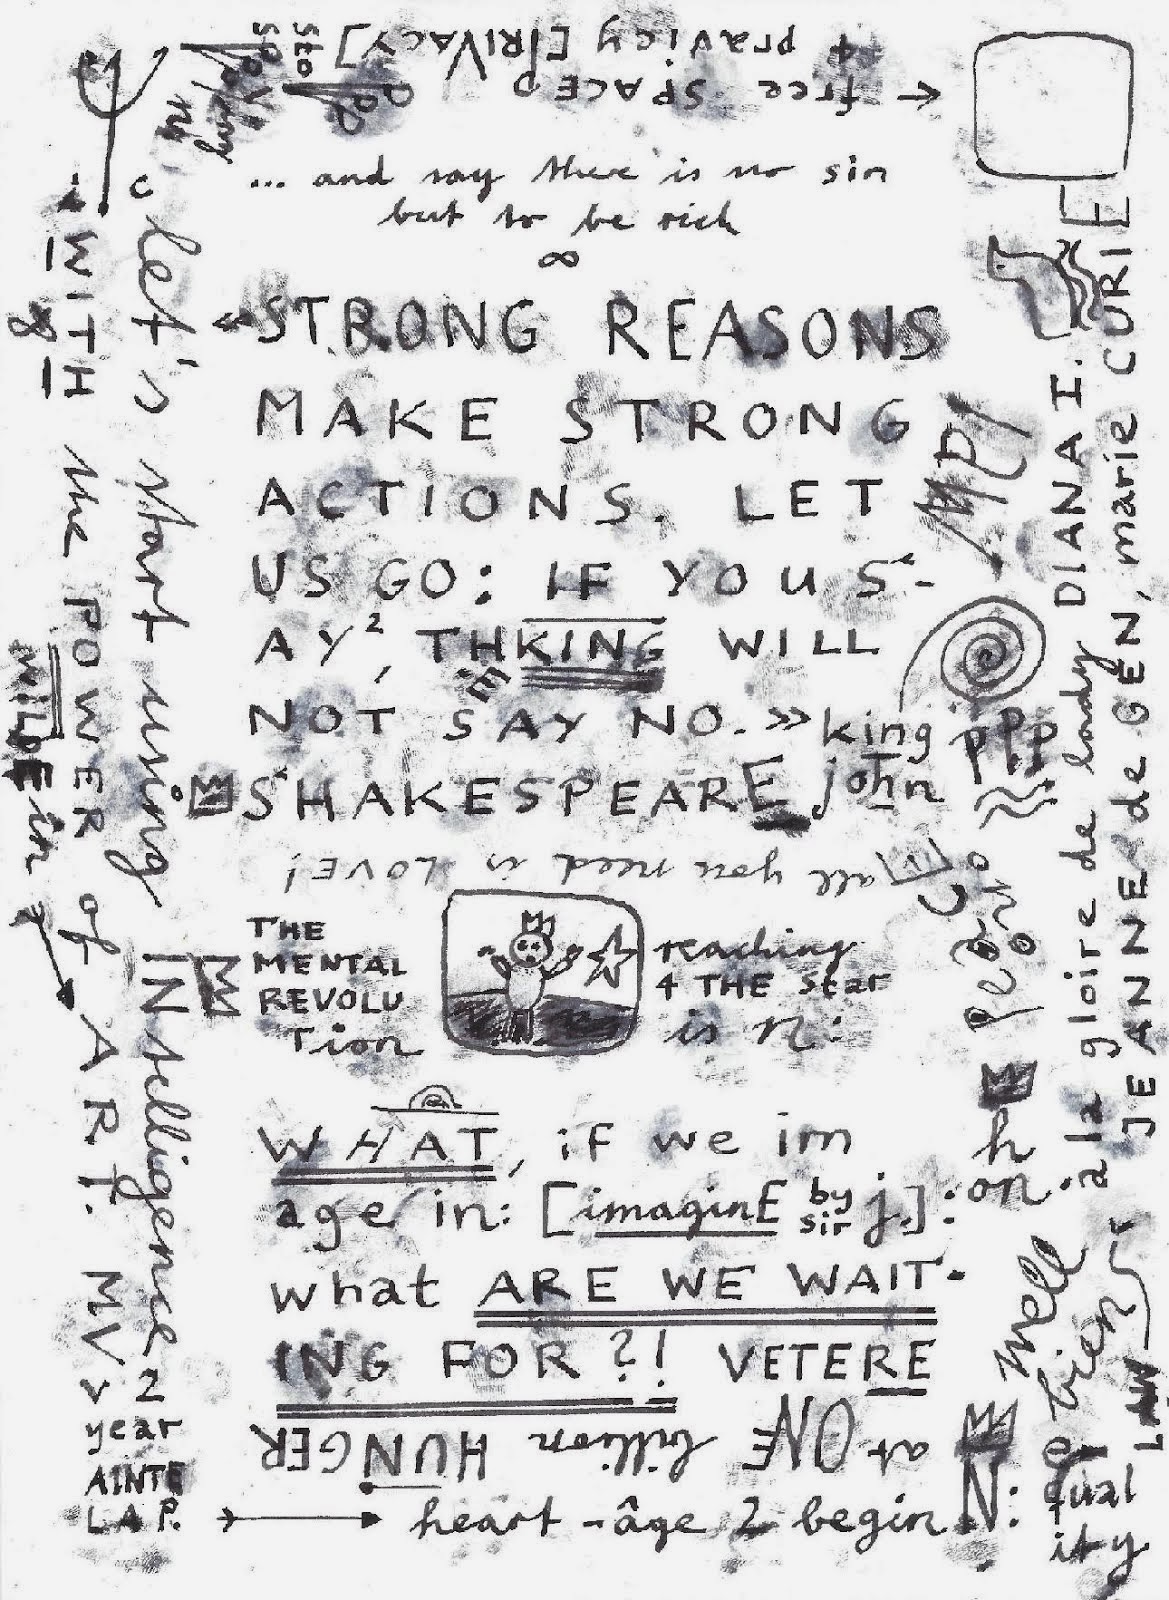 4 pravicy [PRIVACY]
← free SPACED
... and say there is no sin
but to be rich
∞
STRONG REASONS
MAKE STRONG
ACTIONS. LET
US GO: IF YOU S-
AY², THKING WILL
NOT SAY NO. » king
SHAKESPEARE john
all you need is LOVE!
THE
MENTAL
REVOLU
Tion
reaching
4 THE Star
is n:
WHAT, iF we im
age in: [imaginE by sir j.]:
what ARE WE WAIT-
ING FOR?! VETERE
at ONE billion HUNGER
heart-âge 2 begin N:
let's start using INtelligence
WITH the POWER of ART. MV
v 2
year
AINTE
LAP.
WILDE in
pPPP
h
on. a la gloire de lady DIANA I.
JEANNE de GEN, marie CURIE
well
bien
LAW
qual
ity